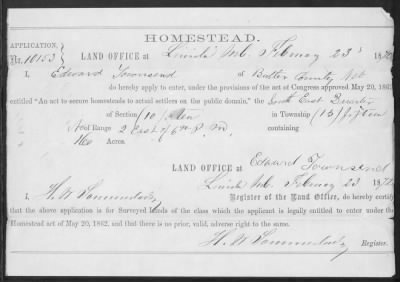 HOMESTEAD.
APPLICATION,
No. 10153
LAND OFFICE at Lincoln Neb. February 23 187
I, Edward Townsend of Butler County Neb
do hereby apply to enter, under the provisions of the act of Congress approved May 20, 1862,
entitled "An act to secure homesteads to actual settlers on the public domain," the South East Quarter
of Section (10) Ten in Township (15) fifteen
of Range 2 East of 6th P. M. containing
160 Acres.
Edward Townsend
LAND OFFICE at Lincoln Neb. February 23 187
I, H. W. Register of the Land Office, do hereby certify
that the above application is for Surveyed Lands of the class which the applicant is legally entitled to enter under the
Homestead act of May 20, 1862, and that there is no prior, valid, adverse right to the same.
H. W.
Register.